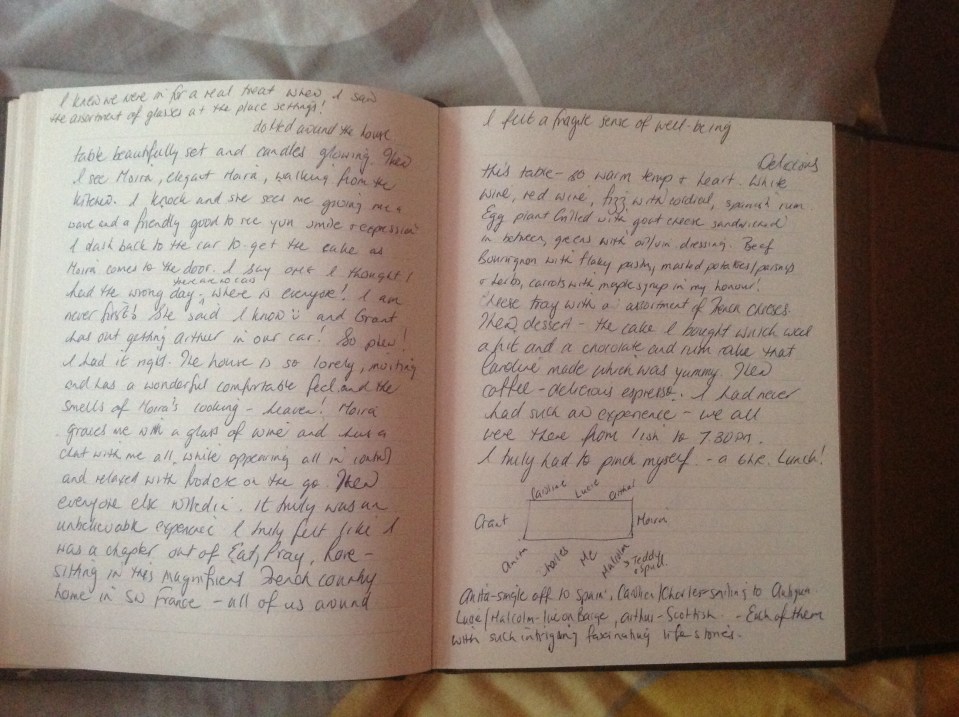 I knew we were in for a real treat when I saw
the assortment of glasses at the place settings!
dotted around the house
table beautifully set and candles glowing. Then
I see Moira, elegant Moira, walking from the
kitchen. I knock and she sees me giving me a
wave and a friendly good to see you smile + expression
I dash back to the car to get the cake as
Moira comes to the door. I say oh I thought I
had the wrong day, where is everyone! I am
never first! She said I know and Grant
was out getting Arthur in our car! So phew!
I had it right. The house is so lovely, inviting
and has a wonderful comfortable feel and the
smells of Moira's cooking - heaven! Moira
graces me with a glass of wine and has a
chat with me all while appearing all in control
and relaxed with on the go. Then
everyone else rolled in. it truly was an
unbelievable experience I truly felt like I
was a chapter out of Eat, Pray, Love -
sitting in this magnificent French country
home in SW France - all of us around
I felt a fragile sense of well-being
Delicious
this table - so warm temp + heart. White
wine, red wine, fizz with cordial, spanish rum
Egg plant Grilled with goat cheese sandwiched
in between, greens with oil/vin dressing. Beef
Bourgignon with flaky pastry, mashed potatoes/parsnips
+ herbs, carrots with maple syrup in my honour!
Cheese tray with a assortment of French cheeses.
Then, dessert - the cake I bought which was
a hit and a chocolate and rum cake that
Caroline made which was yummy. Then
coffee - delicious espresso. I had never
had such an experience - we all
were there from 1ish to 7.30pm.
I truly had to pinch myself. - a 6hr. Lunch!
Caroline Lucie Arthur
Grant Moira
Anita Charles Me Malcolm > Teddy + Spud
Anita-single off to Spain, Caroline/Charles-sailing to Antigua
Lucie/Malcolm-live on Barge, Arthur-Scottish. - Each of them
with such intriguing fascinating life stories.